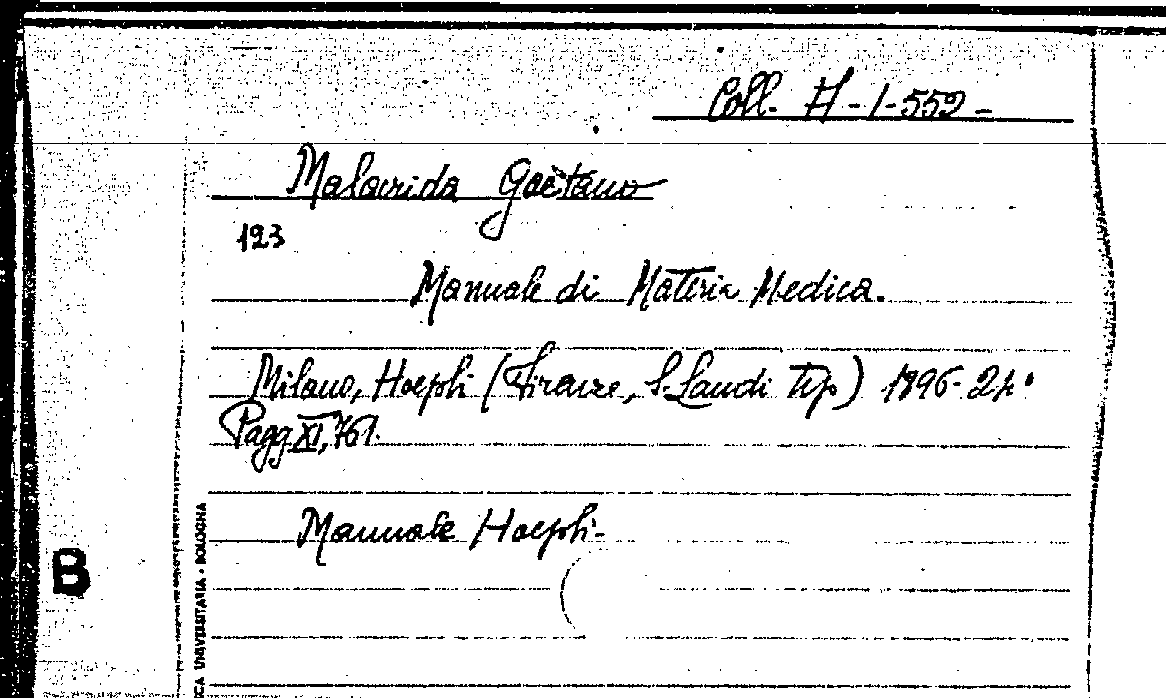 Coll. H-1-552-
Malacrida Gaetano
123
Manuale di Materia Medica.
Milano, Hoepli (Firenze, S. Landi Tip.) 1896- 24°
Pagg XI, 761.
Manuale Hoepli-
B
ICA UNIVERSITARIA - BOLOGNA